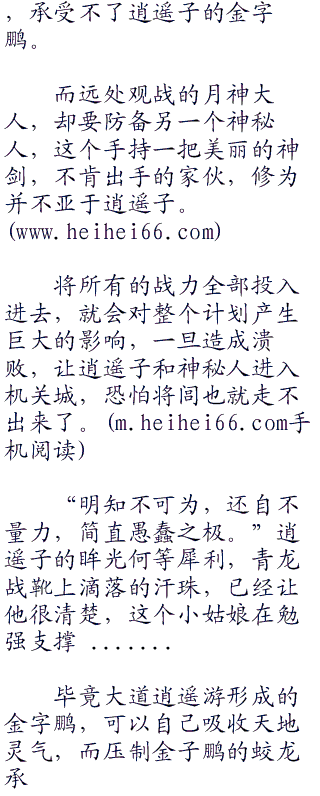 ，承受不了逍遥子的金字
鹏。
而远处观战的月神大
人，却要防备另一个神秘
人，这个手持一把美丽的神
剑，不肯出手的家伙，修为
并不亚于逍遥子。
(www.heihei66.com)
将所有的战力全部投入
进去，就会对整个计划产生
巨大的影响，一旦造成溃
败，让逍遥子和神秘人进入
机关城，恐怕将闾也就走不
出来了。(m.heihei66.com手
机阅读)
“明知不可为，还自不
量力，简直愚蠢之极。”逍
遥子的眸光何等犀利，青龙
战靴上滴落的汗珠，已经让
他很清楚，这个小姑娘在勉
强支撑 .......
毕竟大道逍遥游形成的
金字鹏，可以自己吸收天地
灵气，而压制金子鹏的蛟龙
承